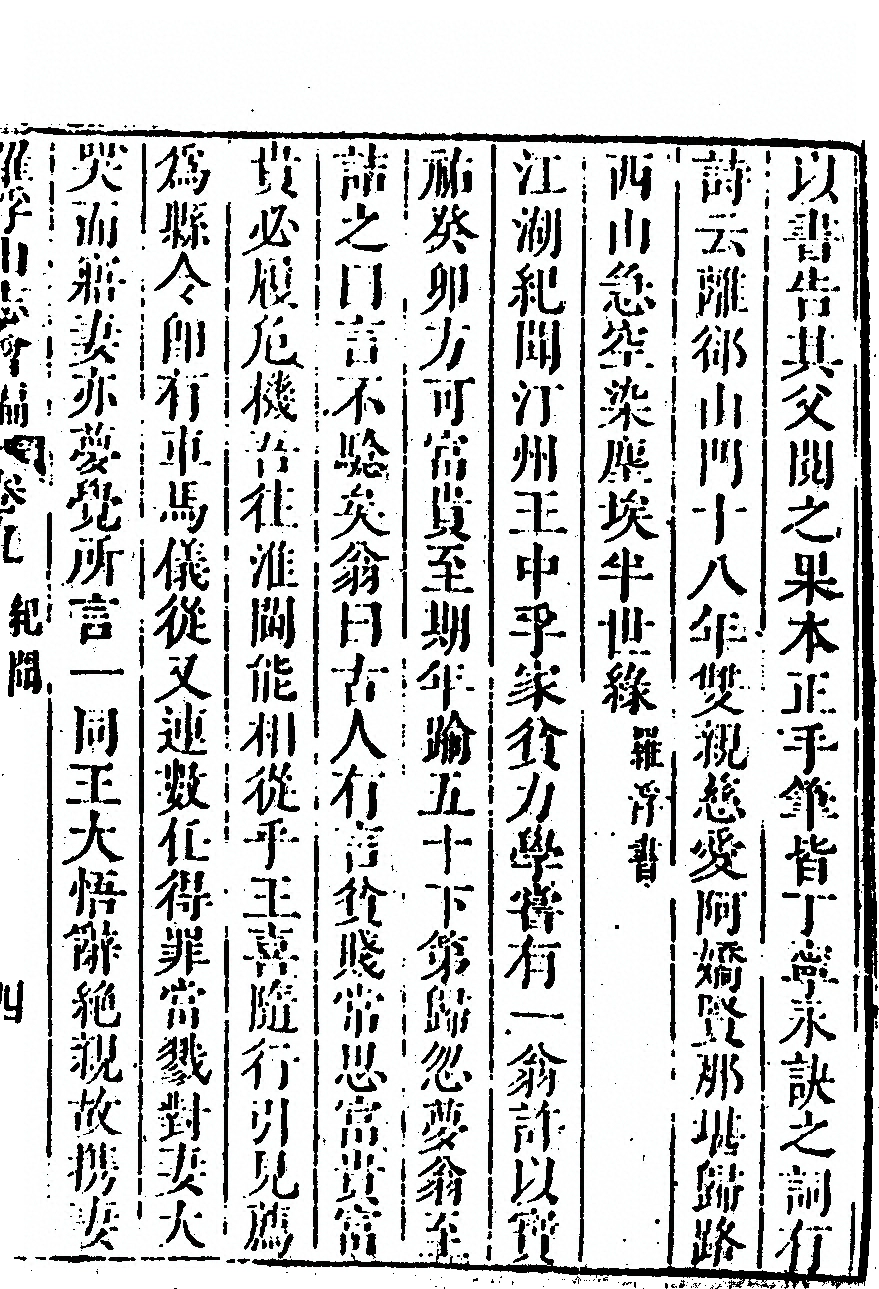 以書告其父閱之果本正手筆皆丁寧永訣之詞有
詩云離鄉山門十八年雙親慈愛阿嬌賢那堪歸路
西山急空染塵埃半世緣羅浮書
江湖紀聞汀州王中孚家貧力學嘗有一翁許以寶
祐癸卯方可富貴至期年踰五十下第歸忽夢翁至
詰之曰言不驗矣翁曰古人有言貧賤常思富貴富
貴必履危機吾往淮閫能相從乎王喜隨行引見薦
為縣令卽有車馬儀從又連數任得罪當戮對妻大
哭而寤妻亦夢覺所言一同王大悟辭絶親故攜妻
羅浮山志會編 卷五 紀聞 四